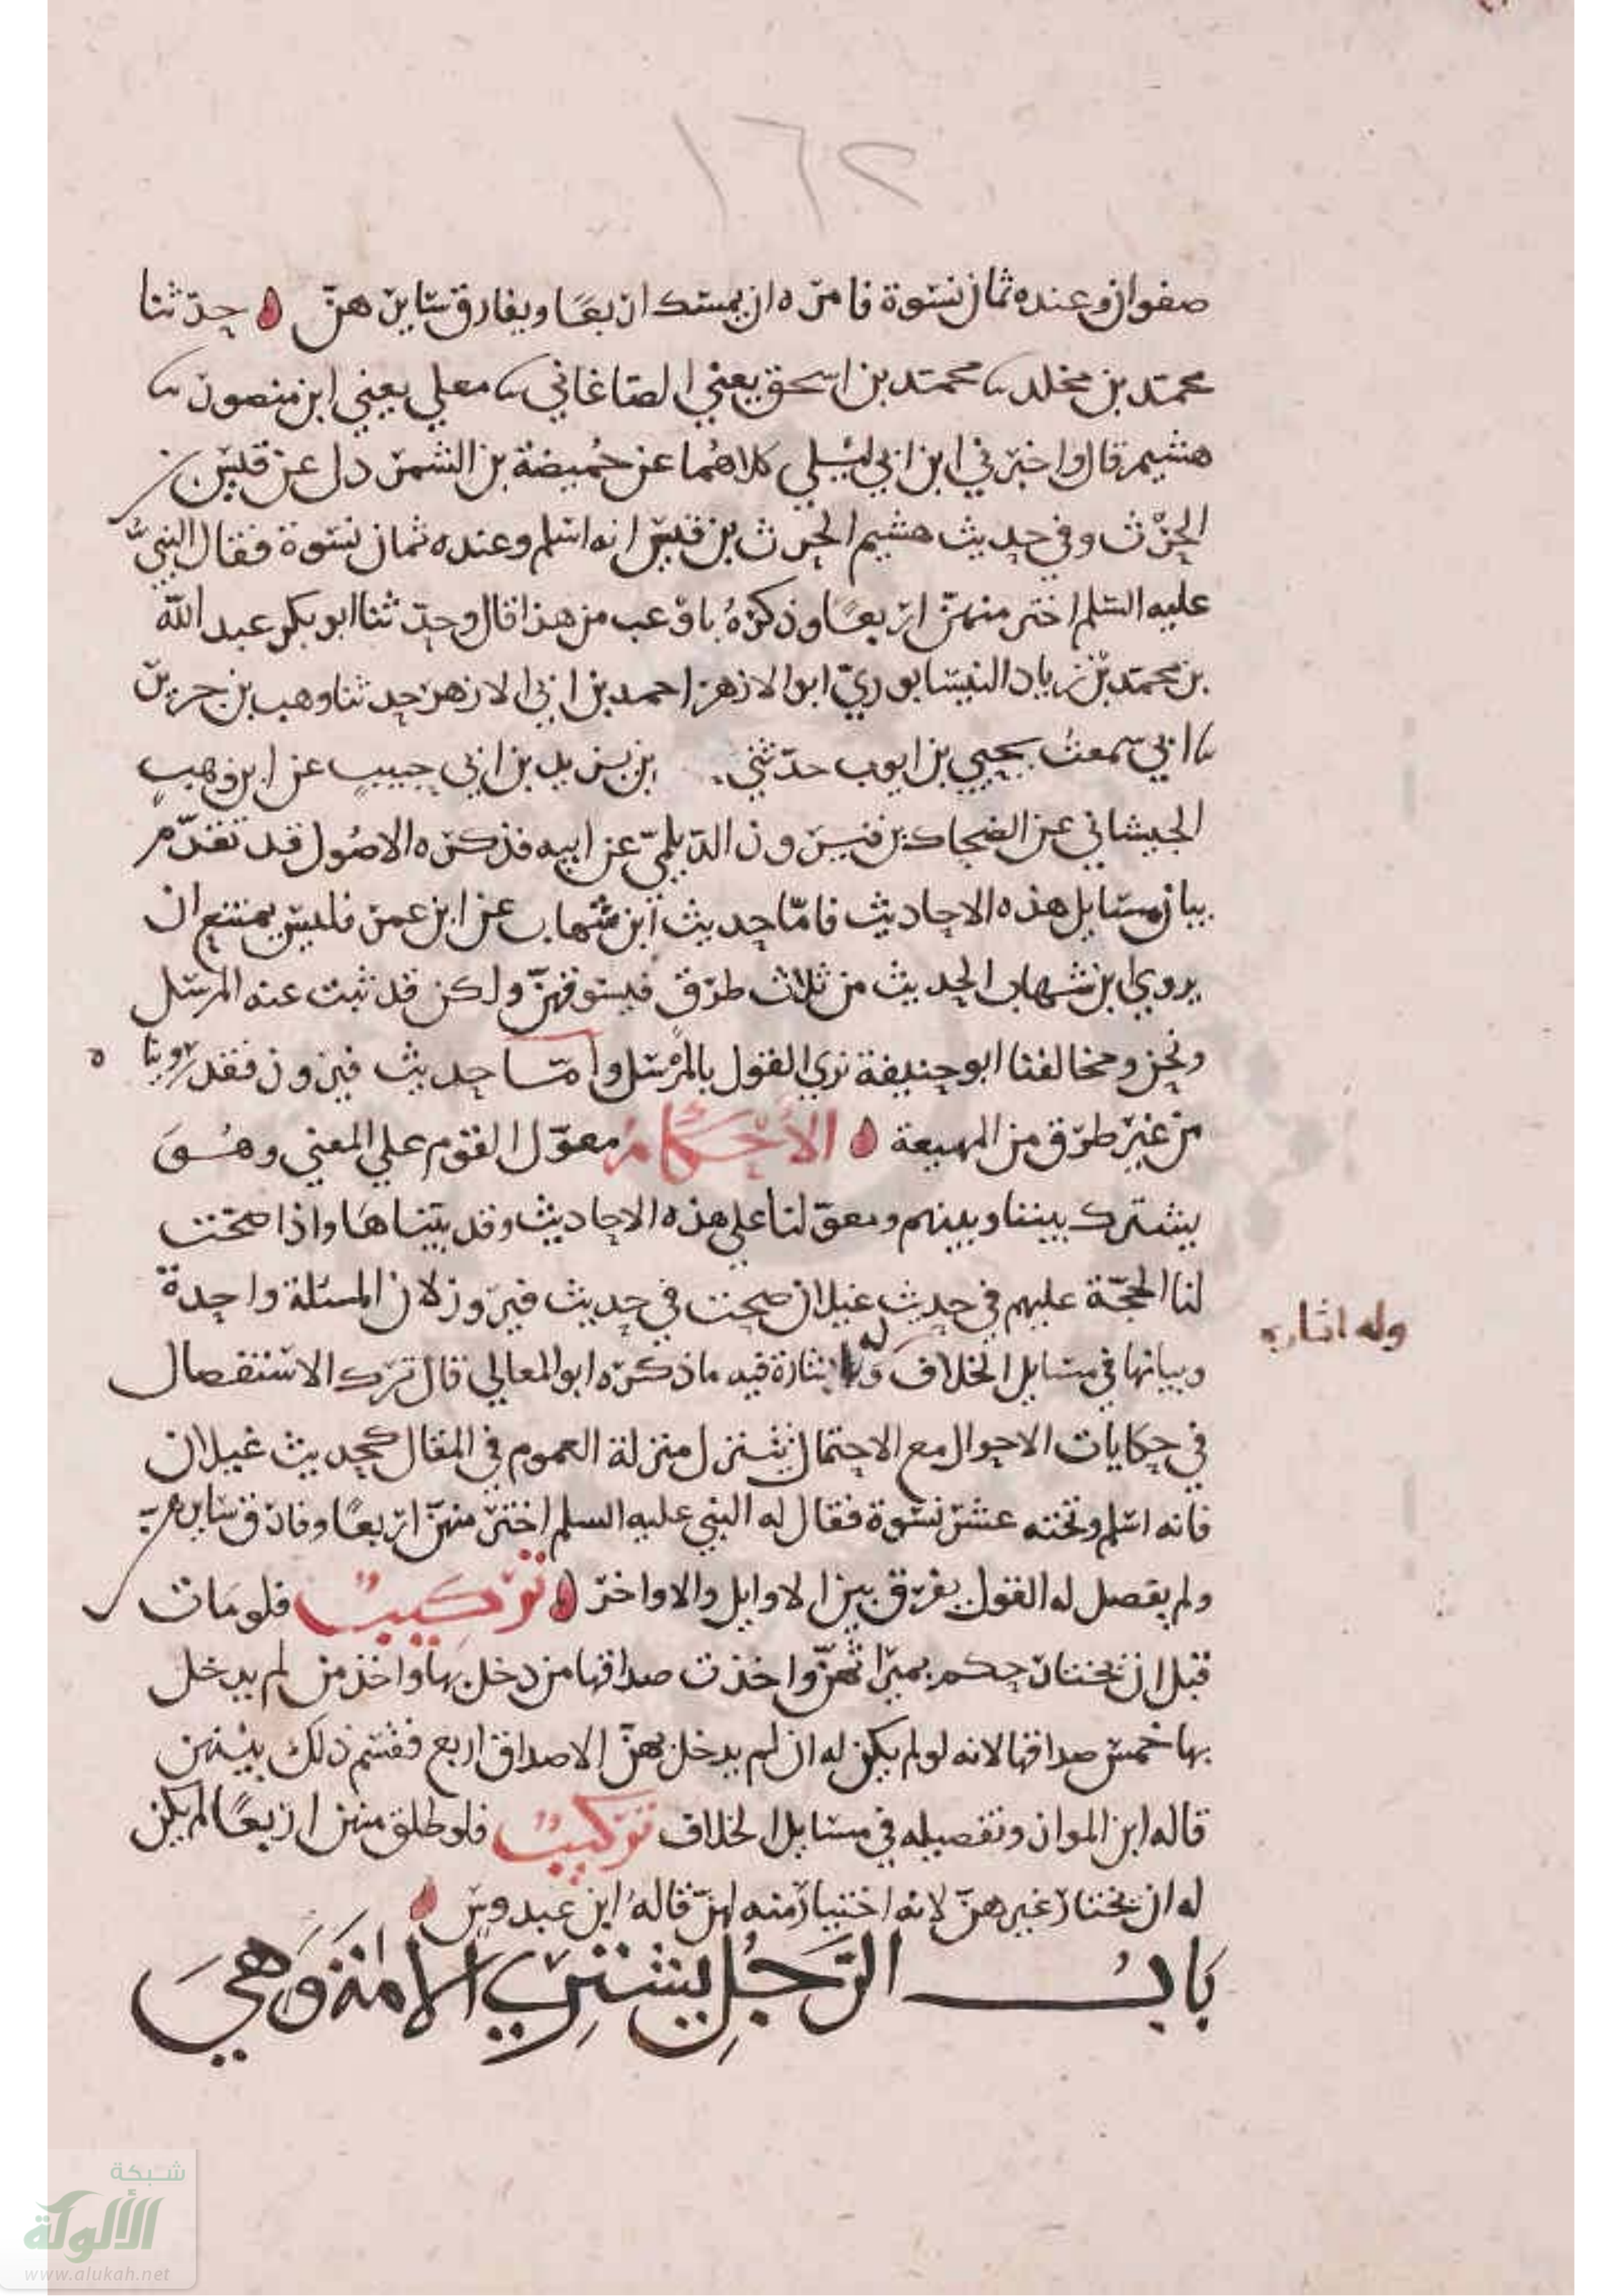 ١٦٢
صفوان وعنده ثمان نسوة فامره ان يمسك اربعًا ويفارق سايرهنّ ه حدّثنا
محمّد بن مخلد نا محمّد بن اسحق يعني الصاغاني نا معلي يعني ابن منصور نا
هشيم قال واخبرني ابن ابي ليلي كلاهُما عن حُميضة بن الشمردل عن قيس بن
الحرْث وفي حديث هشيم الحرث بن قيس انه اسلم وعنده ثمان نسوة فقال النبيُّ
عليه السلم اختر منهنّ اربعًا وذكرهُ باوْعب من هذا قال وحدّثنا ابو بكر عبد اللّه
بن محمّد بْن زياد النيسابوريّ ابو الازهر احمد بن ابي الازهر حدثنا وهب بن جرير
نا ابي سمعتُ يحيي بن ايوب حدّثني بن يزيد بن ابي حبيبٍ عن ابن وهبٍ
الجيشاني عن الضحاك بن فيروز الدّيلميّ عن ابيه فذكره الاصُول قد تقدّم
بيان مسايل هذه الاحاديث فامّا حديث ابن شهاب عن ابن عمر فليس يمتنع ان
يروي ابن شهاب الحديث من ثلاث طرقٍ فيستوفهنّ ولكن قد ثبت عنه المرسل
ونحن ومخالفنا ابو حنيفة نري القول بالمرْسل وامّا حديث فيروز فقد روينا ه
من غير طرق من المهيعة ه الأحْكَامُ معوّل القوم علي المعني وهُوَ
يشترك بيننا وبينهم ومعوّلنا علي هذه الاحاديث وقد بيّناهَا واذا صحّت
لنا الحجّة عليهم في حديث غيلان صحت في حديث فيروز لان المسئلة واحدة
وبيانها في مسايل الخلاف وله اشارة فيه ما ذكره ابو المعالي قال ترك الاستفصال
وله اشاره
في حكايات الاحوال مع الاحتمال يتنزل منزلة العموم في المقال كحديث غيلان
فانه اسلم وتحته عشر نسوة فقال له النبي عليه السلم اختر منهنّ اربعًا وفارق سايرهنّ
ولم يفصل له القول بفرق بين الاوايل والاواخر ه تركيبٌ فلو مَات
قبل ان يختار حكم بميراثهنّ واخذت صداقها من دخل بها واخذ من لم يدخل
بها خمس صداقها لانه لو لم يكن له ان لم يدخل بهنّ الا صداق اربع فقسم ذلك بيْنهن
قاله ابن المواز وتفصيله في مسايل الخلاف تركيبٌ فلو طلق منهن اربعًا لم يكن
له ان يختار غيرهنّ لانه اختيار منه لهنّ قالهُ ابن عبدوس ه
بَابُ الرَّجُلِ يشترِي الامَة وَهيَ
شبكة
الألوكة
www.alukah.net